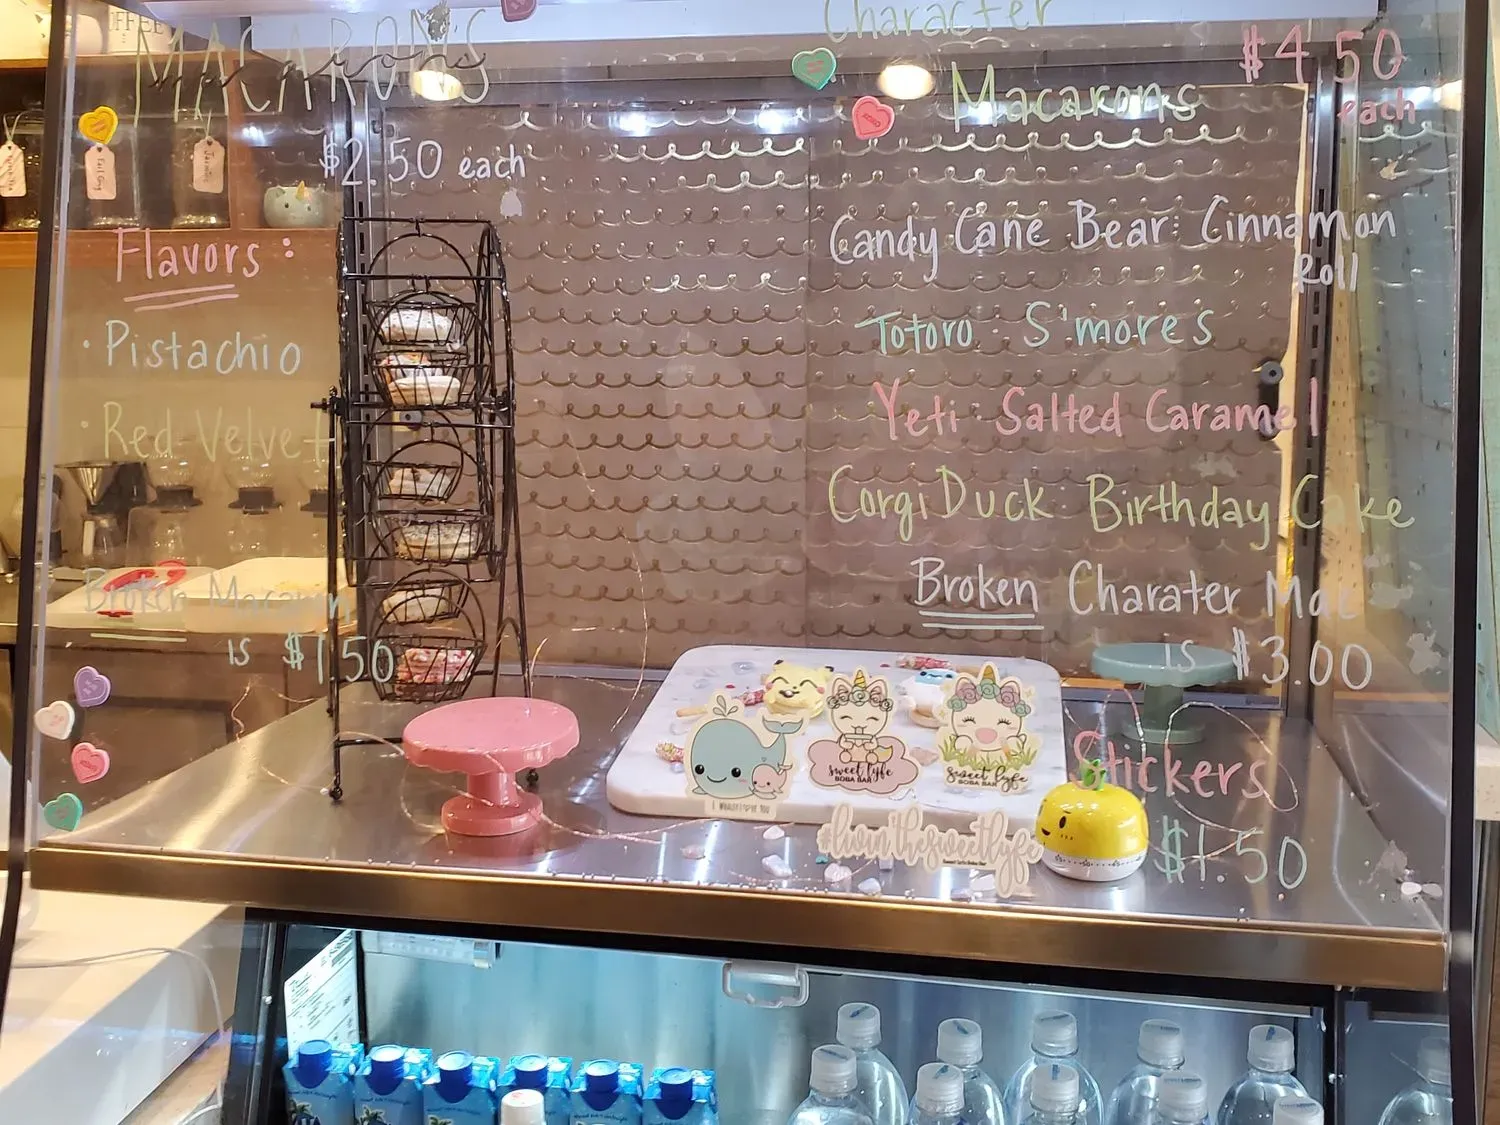 MACARONS
macarons
$2.50 each
Flavors:
· Pistachio
· Red Velvet
Broken Macaron
is $1.50
Character
Macarons
$4.50
each
Candy Cane Bear: Cinnamon
Roll
Totoro: S'mores
Yeti: Salted Caramel
Corgi Duck: Birthday Cake
Broken Charater Mac
is $3.00
Stickers
$1.50
I WHALEY LOVE YOU
sweet lyfe
BOBA BAR
sweet lyfe
BOBA BAR
#livin'thesweetlyfe